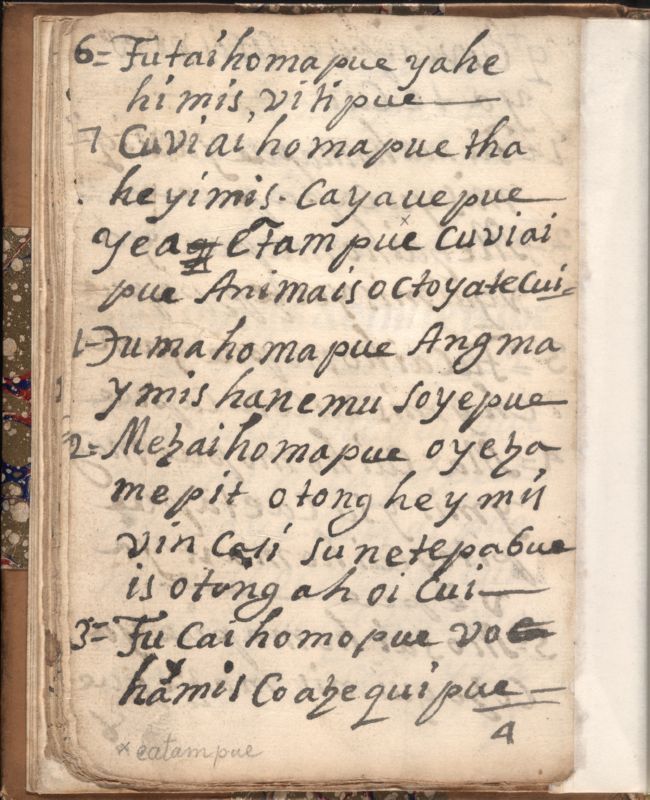 6= Futaihomapue yahe
himis, vitipue—
7 Cuviai homapue tha
heyimis. Cayauepue—
yea Etampue cuviai
pue Animaisoctoyatecui=
1- Fumahomapue Angma
ymis hanemu soyepue—
2= Meҙaihomapue oyeҙa
mepit otong heymij
vin Casi sunetepabue
is otong ah oi Cui—
3= Fu Cai homopue vo
hamis Coaҙequipue—
4
× eatampue